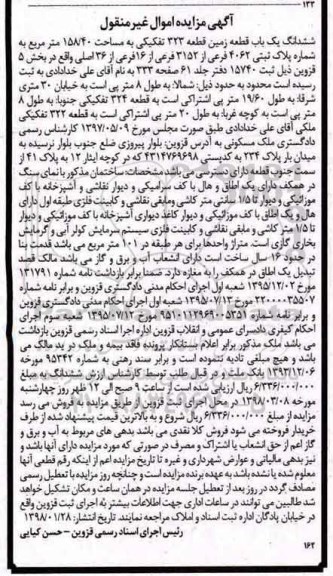 ۱۳۳
آگهی مزایده اموال غیر منقول
ششدانگ یک باب قطعه زمین قطعه ۳۲۳ تفکیکی به مساحت ۱۵۸/۴۰ متر مربع به
شماره پلاک ثبتی ۴۰۶۲ فرعی از ۳۱۵۲ فرعی از ۱۶فرعی از ۳۶ اصلی واقع در بخش ۵
قزوین ذیل ثبت ۱۵۷۴۰ دفتر جلد ۶۱ صفحه ۳۳۳ به نام آقای علی خدادادی به ثبت
رسیده است محدود به حدود ذیل: شمالا: به طول ۸ متر پی است به خیابان ۳۰ متری
شرقا: به طول ۱۹/۶۰ متر پی اشتراکی است به قطعه ۳۲۴ تفکیکی جنوبا: به طول ۸
متر پی است به کوچه غربا: به طول ۲۰ متر پی اشتراکی است به قطعه ۳۲۲ تفکیکی
ملکی آقای علی خدادادی طبق صورت مجلس مورخ ۱۳۹۷/۰۵/۰۹ کارشناس رسمی
دادگستری ملک مسکونی به آدرس قزوین: بلوار پیروزی ضلع جنوب بلوار نرسیده به
میدان بار پلاک ۲۳۴ به کدپستی ۴۳۱۴۷۶۹۶۹۸ که در کوچه ایثار ۱۲ به پلاک ۴۱ از
سمت جنوب قطعه دارای دسترسی می باشد مشخصات: ساختمان مذکور با نمای سنگ
در همکف دارای یک اطاق و هال با کف سرامیکی و دیوار نقاشی و آشپزخانه با کف
موزائیکی و دیوار تا ۱/۵ سانتی متر کاشی ومابقی نقاشی و کابینت فلزی طبقه اول دارای
هال و یک اطاق با کف موزائیکی و دیوار کاغذ دیواری آشپزخانه با کف موزائیکی و دیوار
تا ۱/۵ متر کاشی و مابقی نقاشی و کابینت فلزی سیستم سرمایش کولر آبی و گرمایش
بخاری گازی است. متراژ واحدها برای هر طبقه در ۱۰۱ متر مربع می باشد قدمت بنا
در حدود ۱۶ سال ساخت است دارای انشعاب آب و برق و گاز می باشد مالک قصد
تبدیل یک اطاق در همکف را به مغازه دارد. ضمنا برابر بازداشت نامه شماره ۱۳۱۷۹۱
مورخ ۱۳۹۵/۱۲/۰۲ شعبه اول اجرای احکام مدنی دادگستری قزوین و برابر نامه شماره
۲۲۰۰۰۰۳۵۵۰۷ مورخ ۱۳۹۵/۰۷/۱۳ شعبه اول اجرای احکام مدنی دادگستری قزوین
و برابر نامه شماره ۹۵۱۰۱۱۲۹۶۹۰۰۵۳۵۱ مورخ ۱۳۹۵/۰۷/۱۲ شعبه سوم اجرای
احکام کیفری دادسرای عمومی و انقلاب قزوین اداره اجرا اسناد رسمی قزوین بازداشت
می باشد ملک مذکور برابر اعلام بستانکار پرونده فاقد بیمه و ملک در ید مالک می
باشد و هیچ مبلغی تادیه ننموده است و برابر سند رهنی به شماره ۹۵۳۴۲ مورخه
۱۳۹۳/۱۲/۰۶ بانک ملت و در قبال طلب توسط کارشناس ارزش ششدانگ به مبلغ
۶/۳۳۶/۰۰۰/۰۰۰ ریال ارزیابی شده است از ساعت ۹ صبح الی ۱۲ ظهر روز چهارشنبه
مورخه ۱۳۹۸/۰۳/۰۸ در محل اجرای ثبت قزوین از طریق مزایده به فروش می رسد
مزایده از مبلغ ۶/۳۳۶/۰۰۰/۰۰۰ ریال شروع و به بالاترین قیمت پیشنهاد شده از طرف
خریدار فروخته می شود فروش کلا نقدی می باشد بدهی های مربوط به آب و برق و
گاز اعم از حق انشعاب یا اشتراک و مصرف در صورتی که مورد مزایده دارای آنها باشد و
نیز بدهی مالیاتی و عوارض شهرداری و غیره تا تاریخ مزایده اعم از اینکه رقم قطعی آنها
معلوم شده یا نشده باشد به عهده برنده مزایده است و چنانچه روز مزایده با تعطیل رسمی
مصادف گردد در روز بعد از تعطیل جلسه مزایده در همان ساعت و مکان تشکیل خواهد
شد طالبین می توانند در ساعات اداری جهت اطلاعات بیشتر به اجرای ثبت قزوین واقع
در خیابان پادگان اداره ثبت اسناد و املاک مراجعه نمایند. تاریخ انتشار: ۱۳۹۸/۰۱/۲۸
رئیس اجرای اسناد رسمی قزوین – حسن کبابی
۱۶۲